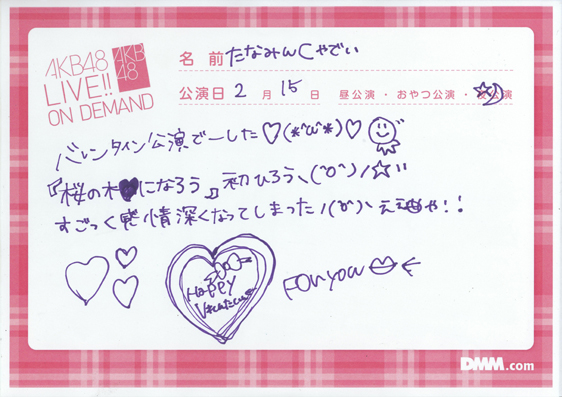 AKB48
LIVE!!
ON DEMAND
AKB
48
名 前 たなみんCゃでぃ
公演日 2 月 15 日 昼公演 ・ おやつ公演 ・ 夜公演
バレンタイン公演でーした♡(*'ω'*)♡
『桜の木になろう』初ひろう、(^o^)ノ☆
すごっく感情深くなってしまった
Happy
Valentine
For you
DMM.com